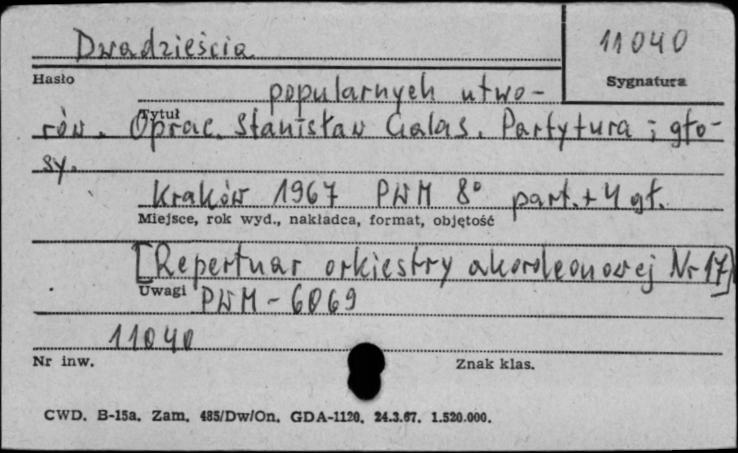 Dwadzieścia
11040
Hasło
Sygnatura
popularnych utwo-
Tytuł
rów. Oprac. Stanisław Galas. Partytura i gło-
sy.
Kraków 1967 PWM 8° part. + 4 gł.
Miejsce, rok wyd., nakładca, format, objętość
[Repertuar orkiestry akordeonowej Nr 17]
Uwagi
PWM - 6069
11040
Nr inw.
Znak klas.
CWD. B-15a. Zam. 485/Dw/On. GDA-1120. 24.3.67. 1.520.000.